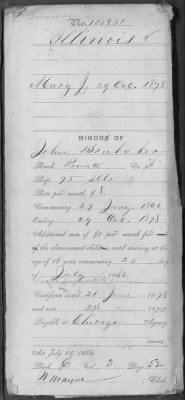 No. 108831
Illinois
Mary J. 29 Oct. 1878
MINORS OF
John Brubaker
Rank, Private Co.
Regt. 75 Ills
Rate per month, $8.
Commencing 27 1866
Ending 29 Oct. 1878
Additional sum of $2 per month for
of the abovenamed children until arriving at the
age of 16 years commencing 25 day
of July 1866
Certificate dated 21 June 1873
and sent
Payable at Chicago Agency
Act July 14, 1862.
Book 6 Vol. 3 Page 52
Clerk